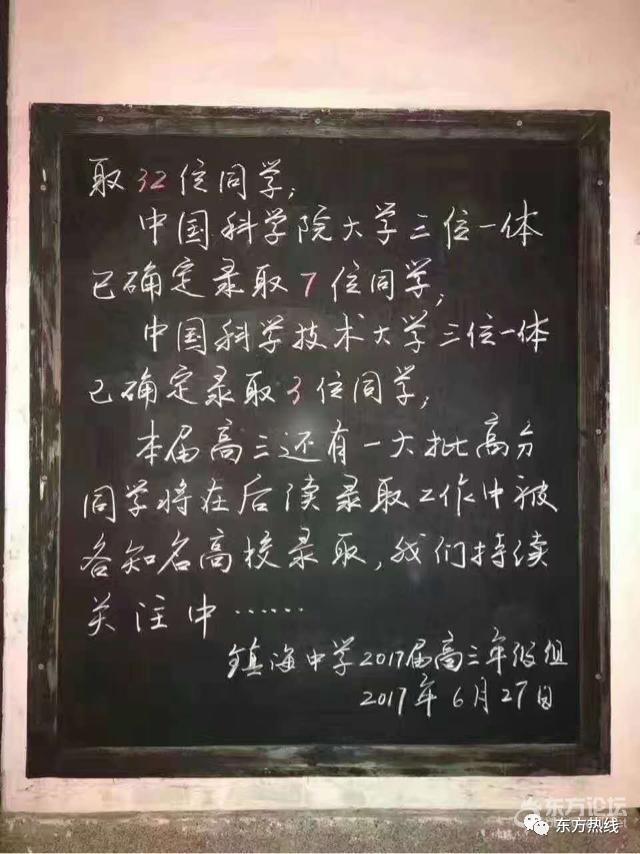 取32位同学;
中国科学院大学三位一体
已确定录取7位同学;
中国科学技术大学三位一体
已确定录取3位同学;
本届高三还有一大批高分
同学将在后续录取工作中被
各知名高校录取,我们持续
关注中……
镇海中学2017届高三年级组
2017年6月27日
东方论坛
东方热线